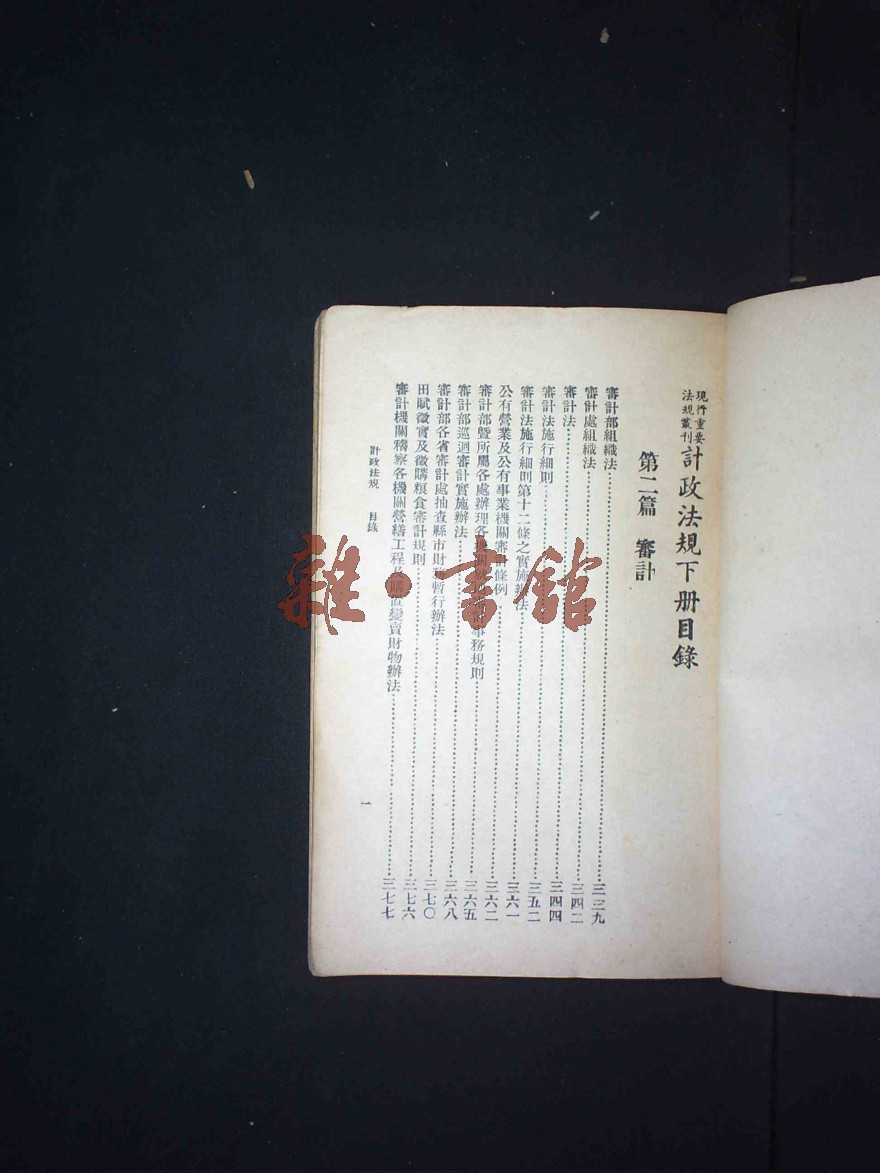 現行重要
法規叢刊
計政法規下册目錄
第二篇 審計
審計部組織法……三三九
審計處組織法……三四二
審計法……三四四
審計法施行細則……三五二
審計法施行細則第十二條之實施辦法……三六一
公有營業及公有事業機關審計條例……三六二
審計部暨所屬各處辦理各事務規則……三六五
審計部巡迴審計實施辦法……三六八
審計部各省審計處抽查縣市財暫行辦法……三七〇
田賦徵實及徵購糧食審計規則……三七六
審計機關稽察各機關營繕工程及購置變賣財物辦法……三七七
計政法規 目錄
一
雜·書館